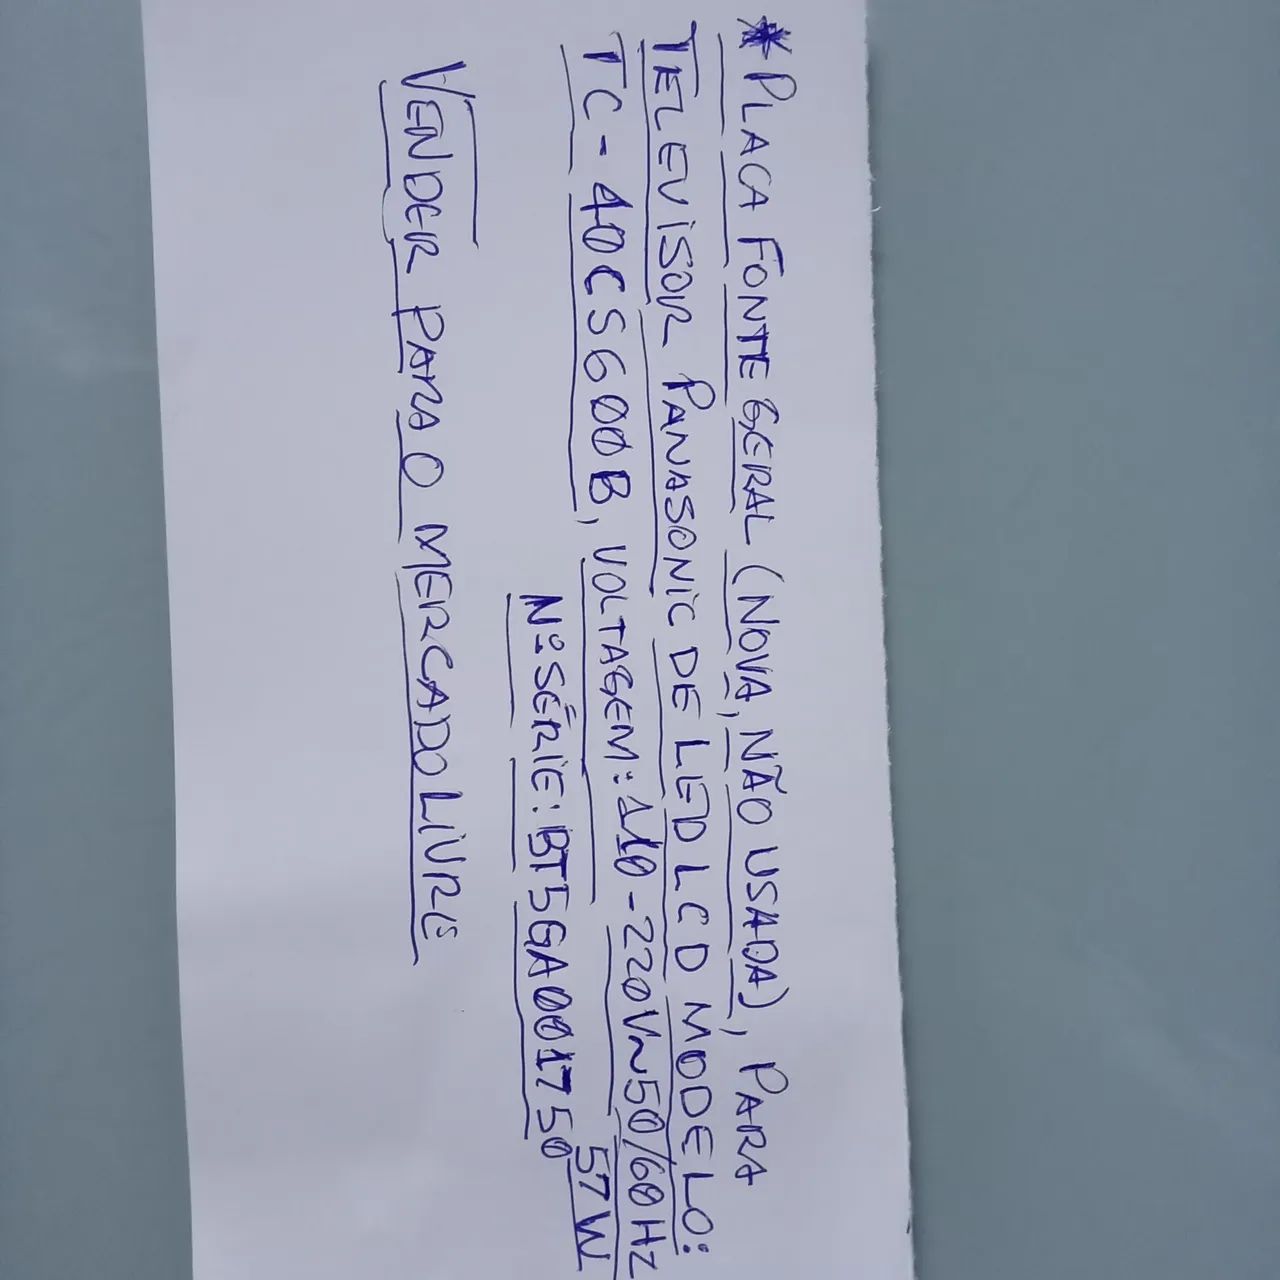 *PLACA FONTE GERAL (NOVA, NÃO USADA), PARA
TELEVISOR PANASONIC DE LED LCD MODELO:
TC-40CS600B, VOLTAGEM: 110-220V~50/60Hz
57W
Nº SÉRIE: BT5GA001750
VENDER PARA O MERCADO LIVRE